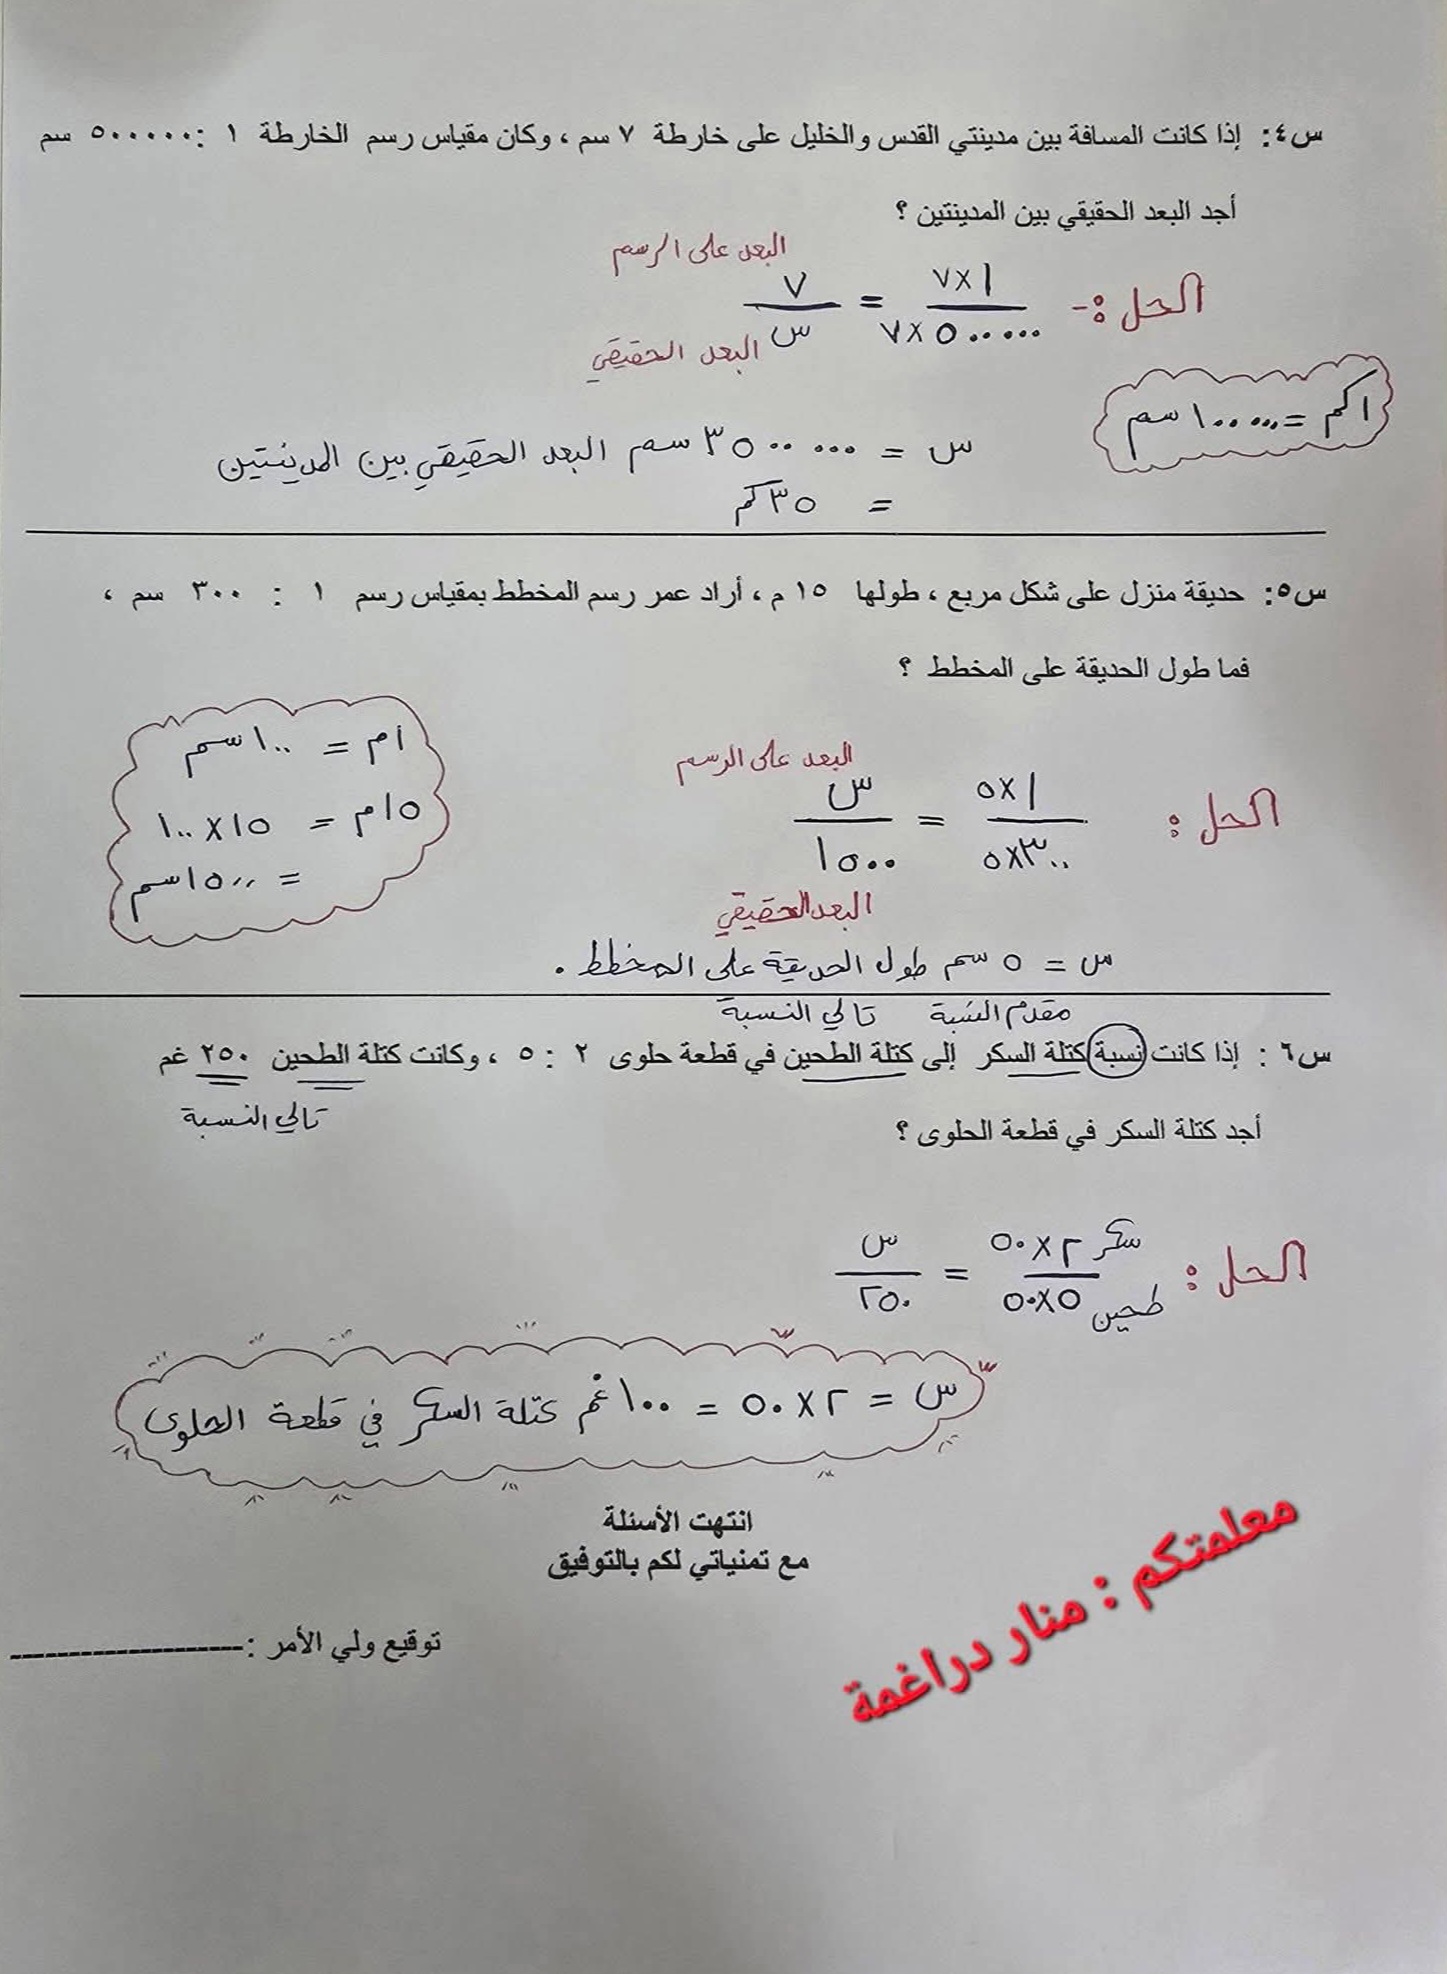 س٤: إذا كانت المسافة بين مدينتي القدس والخليل على خارطة ٧ سم ، وكان مقياس رسم الخارطة ١ : ٥٠٠٠٠٠ سم
أجد البعد الحقيقي بين المدينتين ؟
البعد على الرسم
الحل :- ١×٧ / ٥٠٠٠٠٠×٧ = ٧ / س
البعد الحقيقي
١كم = ١٠٠٠٠٠ سم
س = ٣٥٠٠٠٠٠ سم البعد الحقيقي بين المدينتين
= ٣٥ كم
س٥: حديقة منزل على شكل مربع ، طولها ١٥ م ، أراد عمر رسم المخطط بمقياس رسم ١ : ٣٠٠ سم ،
فما طول الحديقة على المخطط ؟
١م = ١٠٠ سم
١٥م = ١٥ × ١٠٠
= ١٥٠٠ سم
البعد على الرسم
الحل : ١×٥ / ٣٠٠×٥ = س / ١٥٠٠
البعد الحقيقي
س = ٥ سم طول الحديقة على المخطط .
مقدم النسبة تالي النسبة
س٦ : إذا كانت نسبة كتلة السكر إلى كتلة الطحين في قطعة حلوى ٢ : ٥ ، وكانت كتلة الطحين ٢٥٠ غم
تالي النسبة
أجد كتلة السكر في قطعة الحلوى ؟
الحل : سكر ٢×٥٠ / طحين ٥×٥٠ = س / ٢٥٠
س = ٢×٥٠ = ١٠٠ غم كتلة السكر في قطعة الحلوى
انتهت الأسئلة
مع تمنياتي لكم بالتوفيق
معلمتكم : منار دراغمة
توقيع ولي الأمر :---------------------